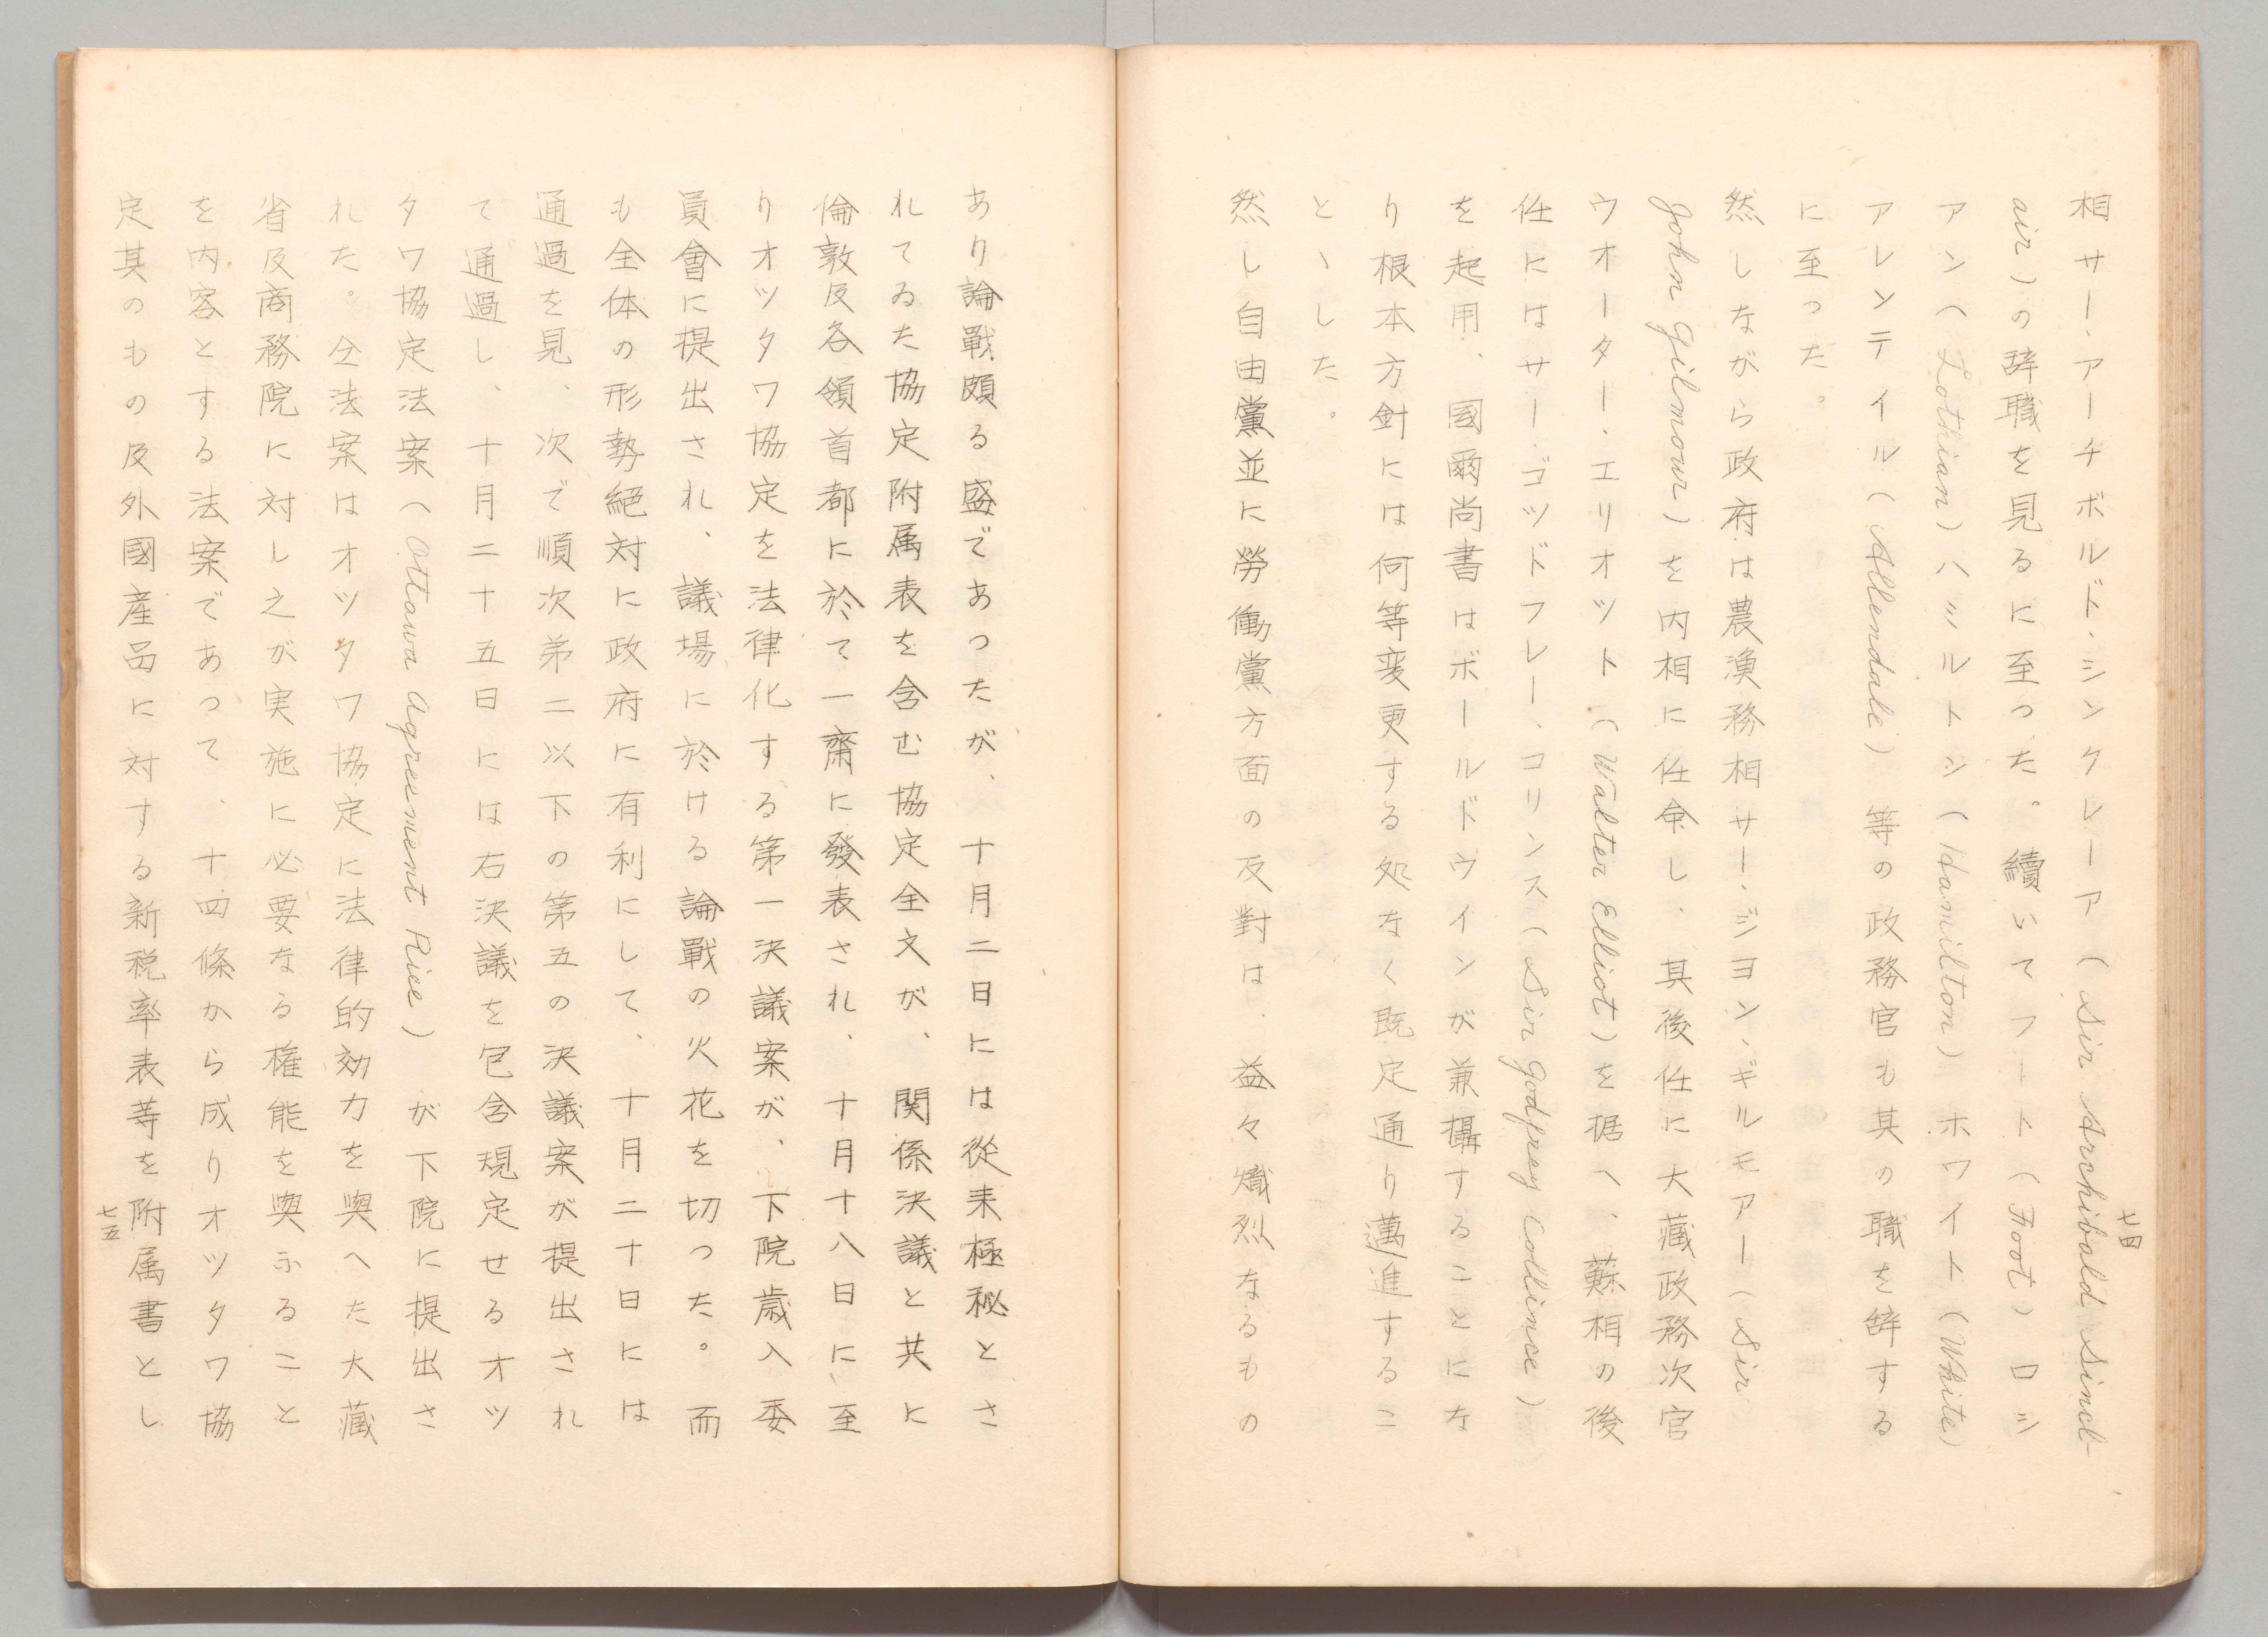 七四
相サー・アーチボルド・シンクレーア(Sir Archibald Sincl-
air)の辞職を見るに至った。續いてフート(Foot)ロシ
アン(Lothian)ハミルトン(Hamilton)ホワイト(White)
アレンデイル(Allendale)等の政務官も其の職を辞する
に至った。
然しながら政府は農漁務相サー・ジヨン・ギルモアー(Sir
John Gilmour)を内相に任命し、其後任に大藏政務次官
ウオーター・エリオット(Walter Elliot)を据へ、蘇相の後
任にはサー・ゴッドフレー・コリンス(Sir Godfrey Collince)
を起用、國璽尚書はボールドウインが兼攝することにな
り根本方針には何等変更する処なく既定通り邁進するこ
とゝした。
然し自由黨並に勞働黨方面の反對は、益々熾烈なるもの
あり論戰頗る盛であったが、十月二日には從来極秘とさ
れてゐた協定附属表を含む協定全文が、関係決議と共に
倫敦及各領首都に於て一齋に發表され、十月十八日に至
りオッタワ協定を法律化する第一決議案が、下院歳入委
員會に提出され、議場に於ける論戰の火花を切った。而
も全体の形勢絕対に政府に有利にして、十月二十日には
通過を見、次で順次第二以下の第五の決議案が提出され
て通過し、十月二十五日には右決議を包含規定せるオツ
タワ協定法案(Ottawa Agreement Rice)が下院に提出さ
れた。仝法案はオツタワ協定に法律的効力を與へた大藏
省及商務院に対し之が実施に必要なる権能を與ふること
を内容とする法案であって、十四條から成りオツタワ協
定其のもの及外國産品に対する新税率表等を附属書とし
七五